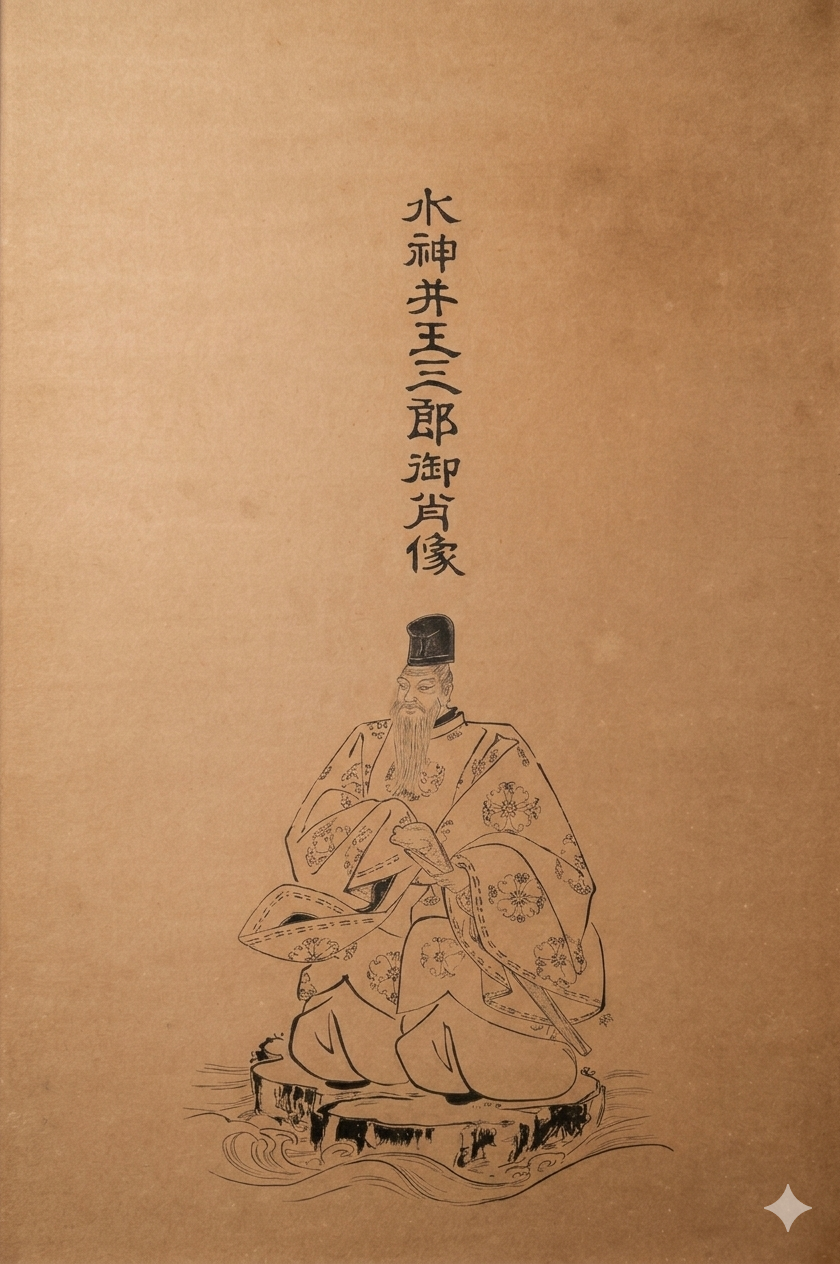 水神井王三郎御肖像